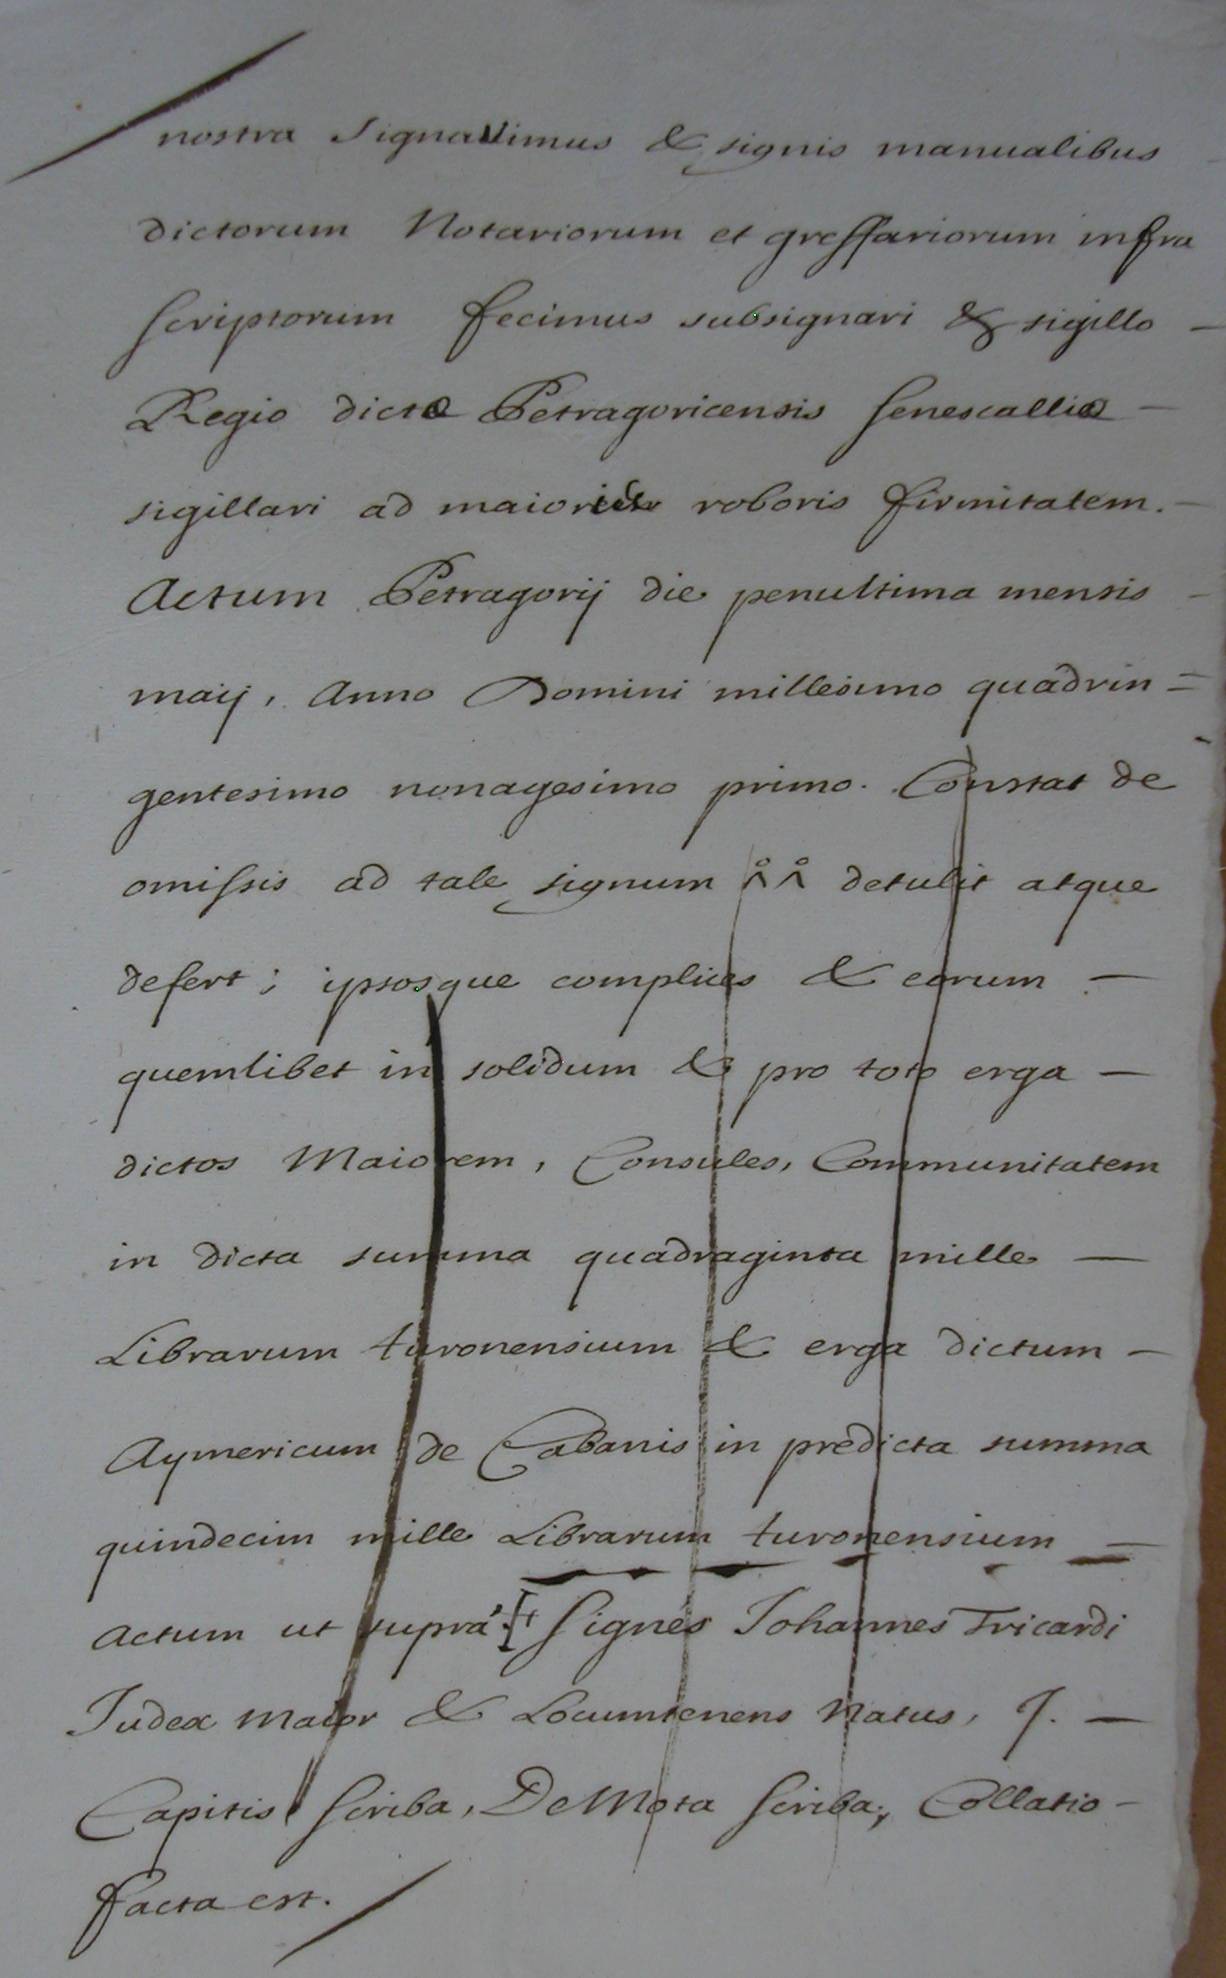 nostra signavimus & signis manualibus
dictorum Notariorum et greffariorum infra
scriptorum fecimus subsignari & sigillo —
Regio dictæ Petragoricensis senescalliæ —
sigillari ad maioris roboris firmitatem. —
Actum Petragorij die penultima mensis —
maij, Anno Domini millesimo quadrin=
gentesimo nonagesimo primo. Constat de
omissis ad tale signum detulit atque
defert; ipsosque complices & eorum —
quemlibet in solidum & pro toto erga —
dictos Maiorem, Consules, Communitatem
in dicta summa quadraginta mille —
Librarum turonensium & erga dictum —
Aymericum de Cabanis in predicta summa
quindecim mille Librarum turonensium —
Actum ut suprà signés Johannes Tricardi
Judex maior & Locumtenens Natus, J. —
Capitis scriba, De Mota scriba; Collatio —
facta est.